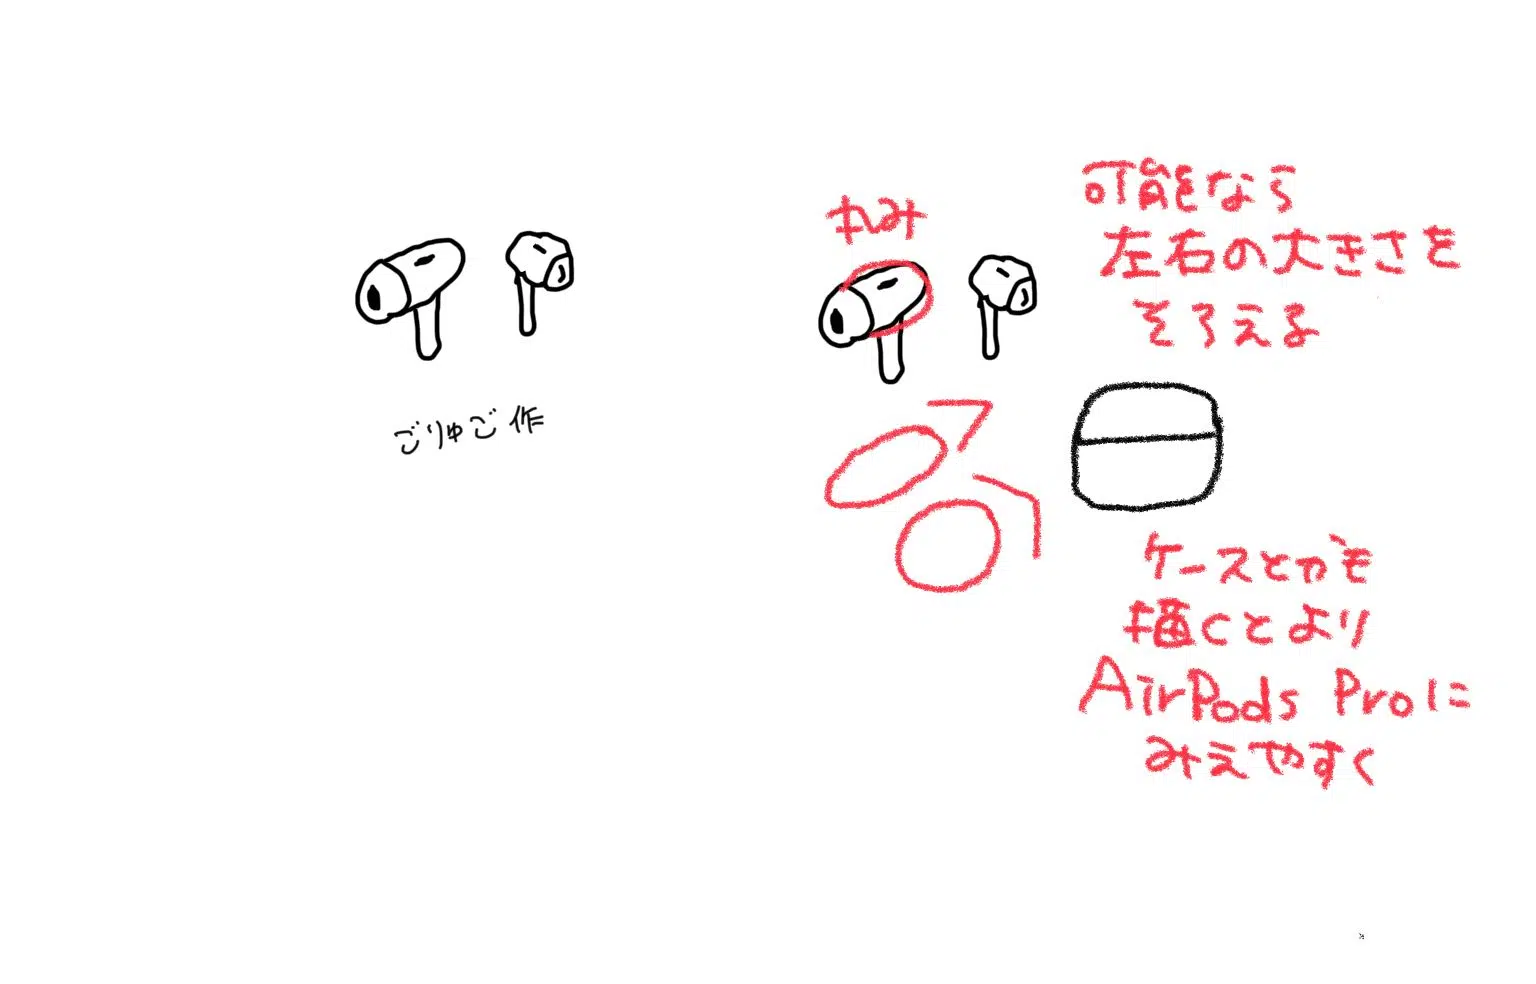 ごりゅご作
丸み
可能なら
左右の大きさを
そろえる
ケースとかも
描くとより
AirPods Proに
みえやすく